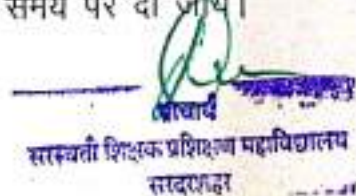 समय पर दी जाये।
प्राचार्य
सरस्वती शिक्षक प्रशिक्षण महाविद्यालय
सरदारशहर